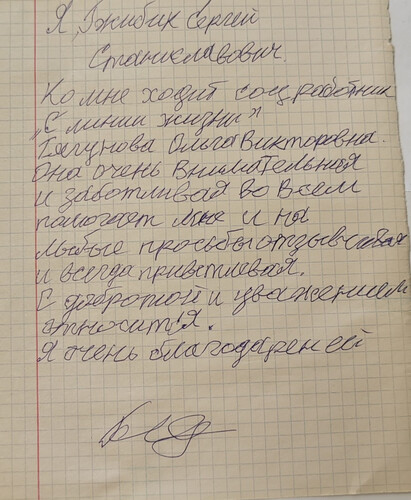 Я, Гжибик Сергей
Станиславович.
Ко мне ходит соц работник
„С линии жизни"
Тягунова Ольга Викторовна.
Она очень внимательная
и заботливая во всем
помогает мне и на
любые просьбы отзывчивая
и всегда приветливая.
С добротой и уважением
относится.
Я очень благодарен ей